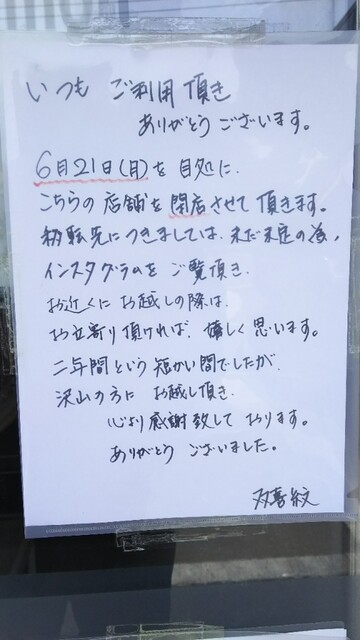 いつも ご利用頂き
ありがとうございます。
6月21日(月)を目処に、
こちらの店舗を閉店させて頂きます。
移転先につきましては、未だ未定の為、
インスタグラムをご覧頂き、
お近くにお越しの際は、
お立寄り頂ければ、嬉しく思います。
二年間という短かい間でしたが、
沢山の方にお越し頂き、
心より感謝致しております。
ありがとうございました。
双喜紋